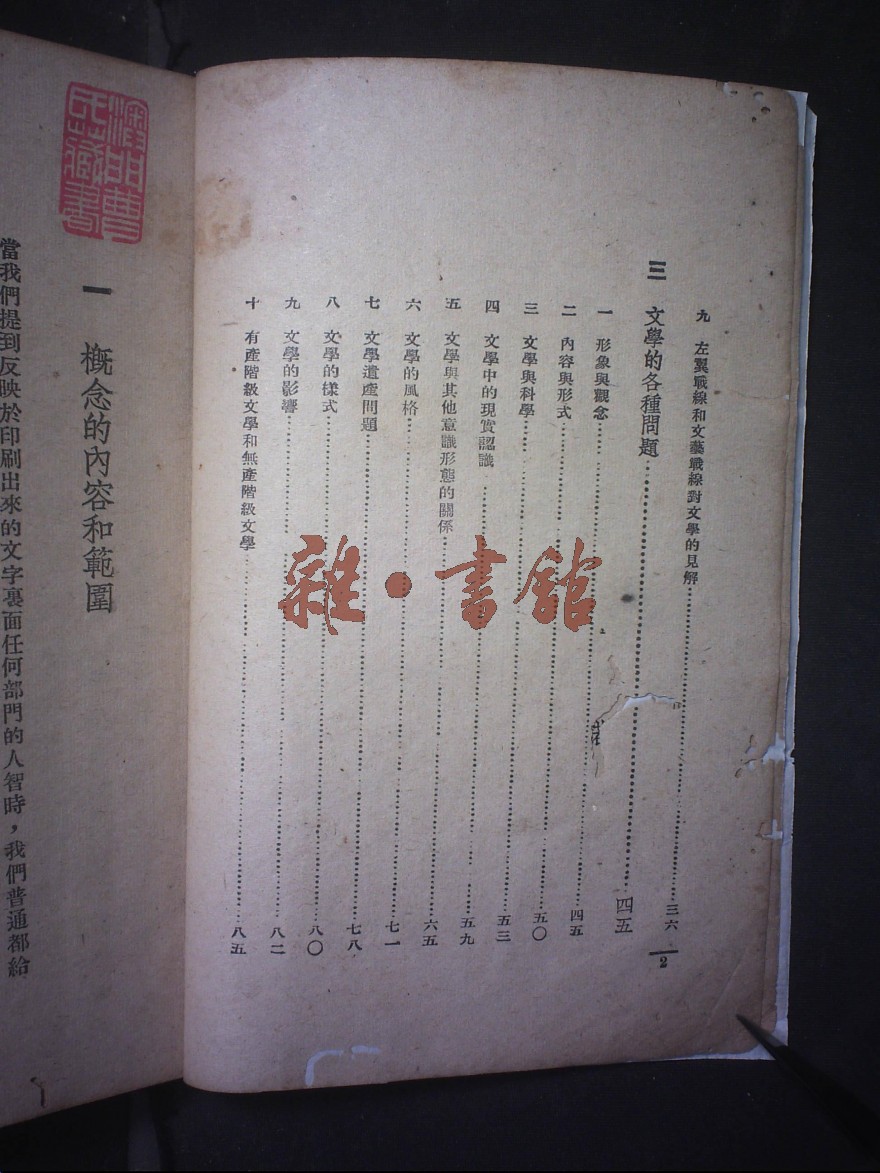 九 左翼戰線和文藝戰線對文學的見解 三六
三 文學的各種問題 四五
一 形象與觀念 四五
二 內容與形式 五〇
三 文學與科學 五三
四 文學中的現實認識 五九
五 文學與其他意識形態的關係 六五
六 文學的風格 七一
七 文學遺產問題 七八
八 文學的樣式 八〇
九 文學的影響 八二
十 有產階級文學和無產階級文學 八五
2
雜·書館
一 概念的內容和範圍
當我們提到反映於印刷出來的文字裏面任何部門的人智時，我們普通都給